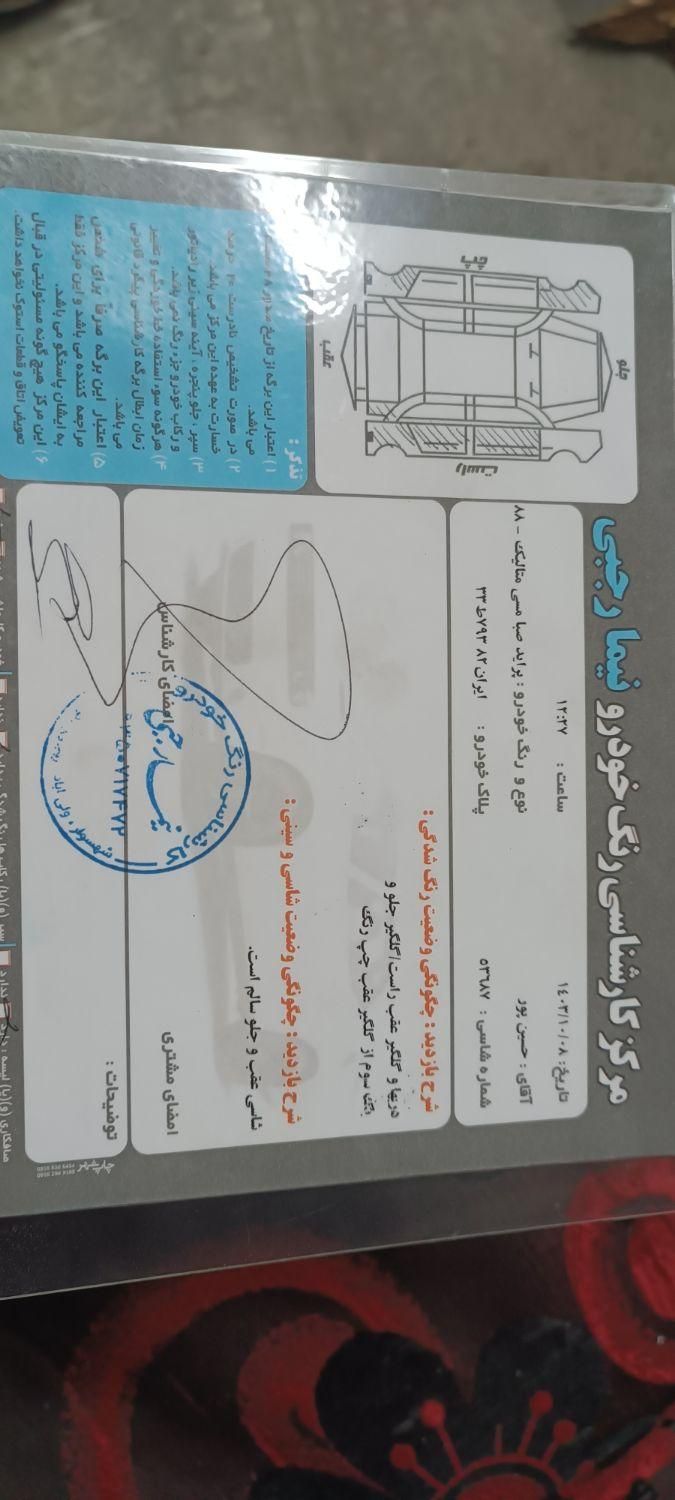 مرکز کارشناسی رنگ خودرو نیما رجبی
تاریخ: ۱۴۰۳/۱۰/۰۸
ساعت : ۱۲:۲۷
آقای : حسین پور
نوع و رنگ خودرو : پراید صبا مسی متالیک - ۸۸
شماره شاسی : ۵۳۶۸۷
پلاک خودرو : ایران ۸۲ ۷۹۳ط۳۳
شرح بازدید : چگونگی وضعیت رنگ شدگی :
دربها و گلگیر عقب راست/گلگیر جلو و
سوم از گلگیر عقب چپ رنگ
شرح بازدید : چگونگی وضعیت شاسی و سینی :
شاسی عقب و جلو سالم است.
امضای مشتری
امضای کارشناس
توضیحات :
جلو
چپ
راست
عقب
تذکر :
۱) اعتبار این برگه از تاریخ صدور ۴۸
می باشد.
۲) در صورت تشخیص نادرست ۲۰ درصد
خسارت به عهده این مرکز می باشد.
۳) سپر ، جلو پنجره ، آینه سینی زیر رادیاتور
و رکاب خودرو جزء رنگ نمی باشد.
۴) هرگونه سوء استفاده خط خوردگی و تغییر
زمان ابطال برگه کارشناسی پیگرد قانونی
می باشد.
۵) اعتبار این برگه صرفاً برای شخص
مراجعه کننده می باشد و این مرکز فقط
به ایشان پاسخگو می باشد.
۶) این مرکز هیچ گونه مسئولیتی در قبال
تعویض اتاق و قطعات استوک نخواهد داشت.
کارشناسی رنگ خودرو
شهسوار ، ولی آباد